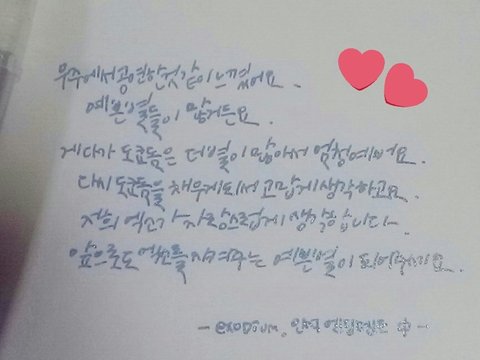 우주에서 공연한것 같이 느꼈어요.
예쁜 별들이 많거든요.
게다가 도쿄돔은 더 별이 많아서 엄청예뻐요.
다시 도쿄돔을 채우게되서 고맙게 생각하고요.
저희 엑소가 자랑스럽게 생각합니다.
앞으로도 엑소를 지켜주는 예쁜별이 되어주세요.
- exodium. 인 엔딩멘트 中 -